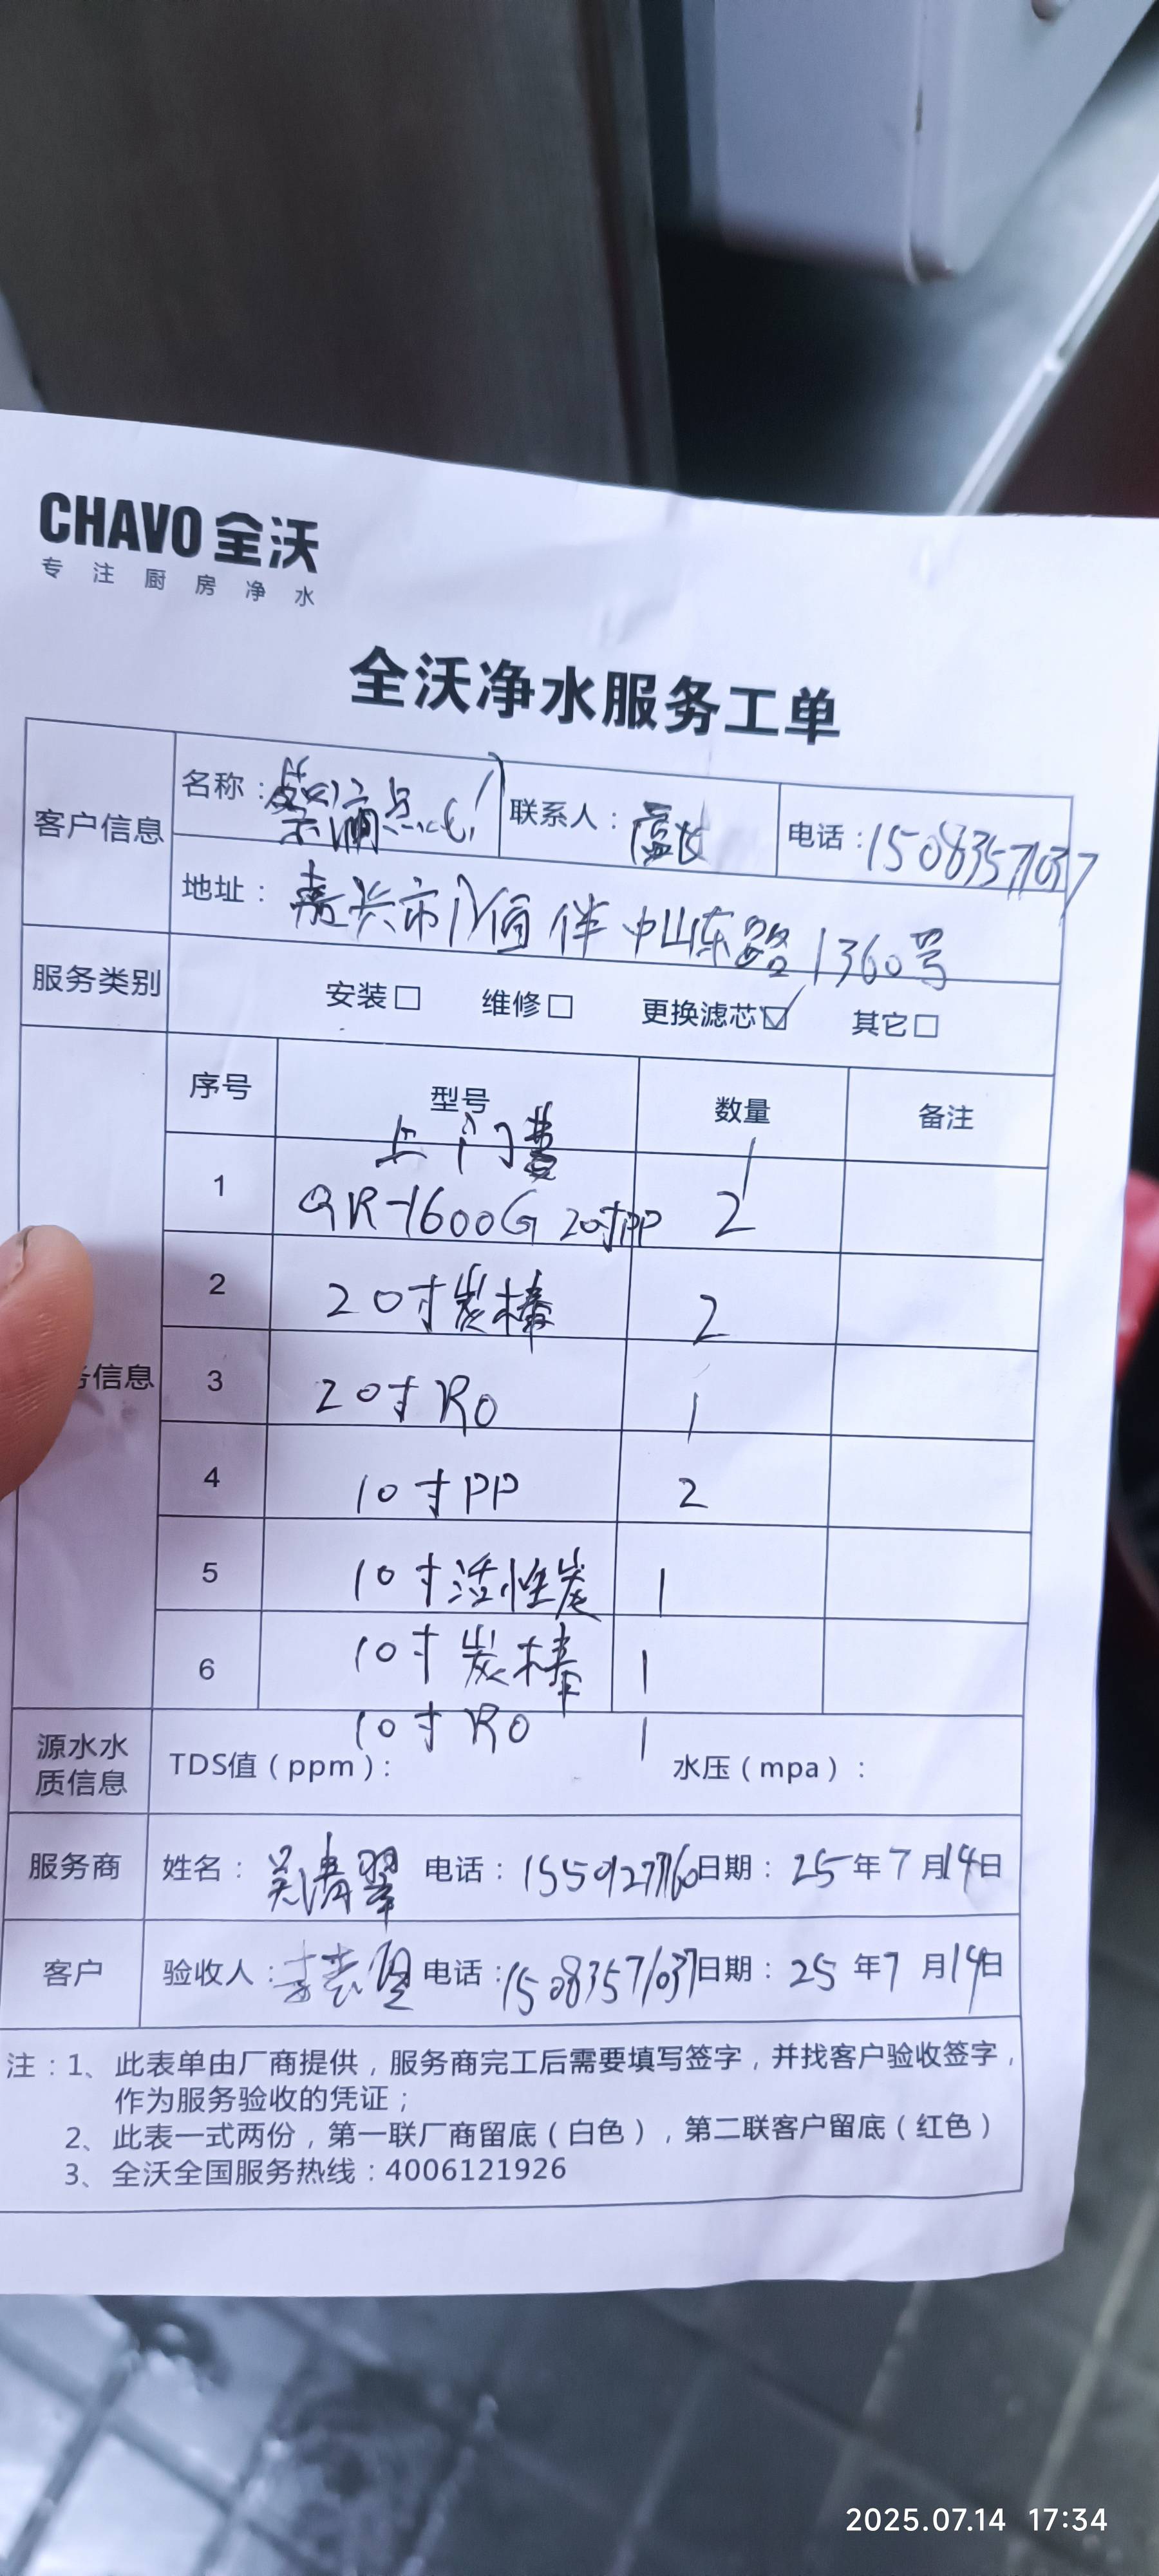 CHAVO 全沃
专注厨房净水
全沃净水服务工单
客户信息
名称：蔡澜点心
联系人：
电话：15083571037
地址：嘉兴市八佰伴中山东路1360号
服务类别
安装□ 维修□ 更换滤芯☑ 其它□
序号 型号 数量 备注
上门费 1
1 QR-1600G 20寸PP 2
2 20寸炭棒 2
务信息
3 20寸RO 1
4 10寸PP 2
5 10寸活性炭 1
6 10寸炭棒 1
10寸RO 1
源水水质信息
TDS值（ppm）： 水压（mpa）：
服务商 姓名：吴清翠 电话： 日期：25年7月14日
客户 验收人： 电话：15083571037 日期：25年7月14日
注：1、此表单由厂商提供，服务商完工后需要填写签字，并找客户验收签字，
作为服务验收的凭证；
2、此表一式两份，第一联厂商留底（白色），第二联客户留底（红色）
3、全沃全国服务热线：4006121926
2025.07.14 17:34